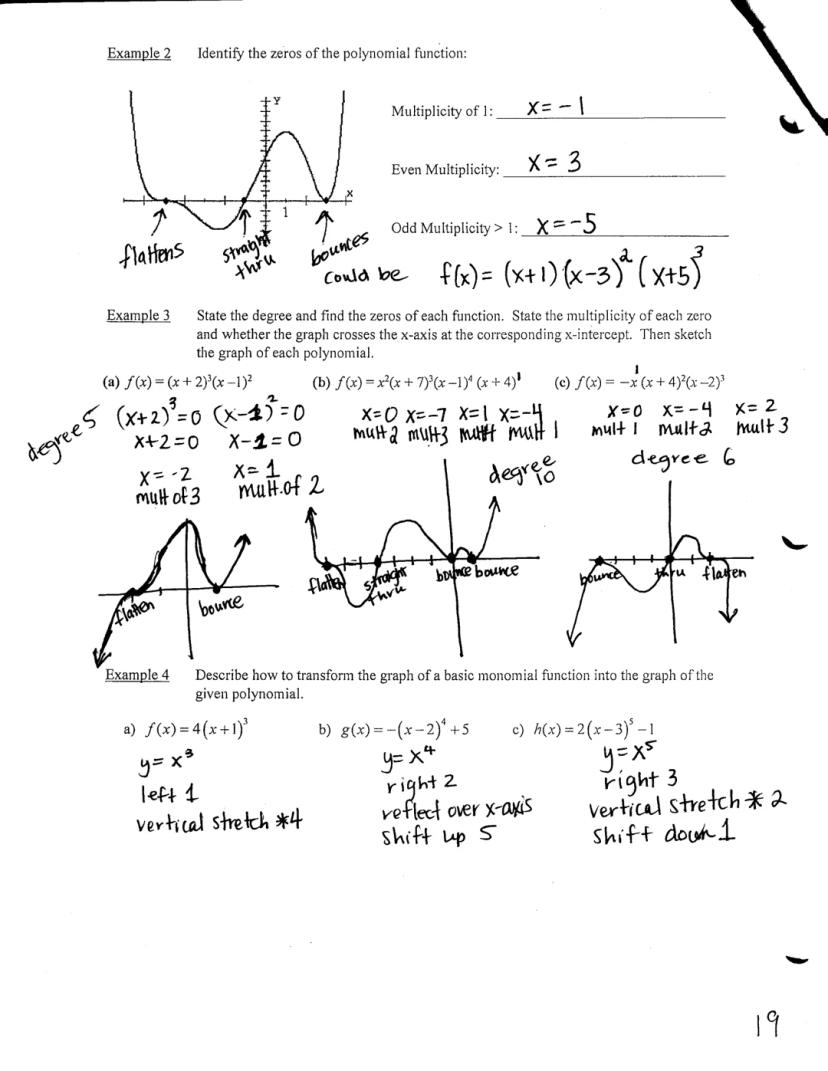 Example 2 Identify the zeros of the polynomial function:
Y
x
1
Multiplicity of 1: x = -1
Even Multiplicity: x = 3
Odd Multiplicity > 1: x = -5
flattens straight thru bounces
could be f(x) = (x+1)(x-3)² (x+5)³
Example 3 State the degree and find the zeros of each function. State the multiplicity of each zero
and whether the graph crosses the x-axis at the corresponding x-intercept. Then sketch
the graph of each polynomial.
(a) f(x) = (x + 2)³(x – 1)² (b) f(x) = x²(x + 7)³(x – 1)⁴ (x + 4)¹ (c) f(x) = –x¹(x + 4)²(x – 2)³
degree 5 (x+2)³=0 (x-1)²=0 x=0 x=-7 x=1 x=-4 x=0 x=-4 x=2
x+2=0 x-1=0 mult 2 mult 3 mult 4 mult 1 mult 1 mult 2 mult 3
x=-2 x=1 degree 10 degree 6
mult of 3 mult. of 2
flatten bounce flatten straight thru bounce bounce bounce thru flatten
Example 4 Describe how to transform the graph of a basic monomial function into the graph of the
given polynomial.
a) f(x) = 4(x+1)³ b) g(x) = –(x–2)⁴ +5 c) h(x) = 2(x–3)⁵ –1
y= x³ y= x⁴ y=x⁵
left 1 right 2 right 3
vertical stretch *4 reflect over x-axis vertical stretch * 2
shift up 5 shift down 1
19